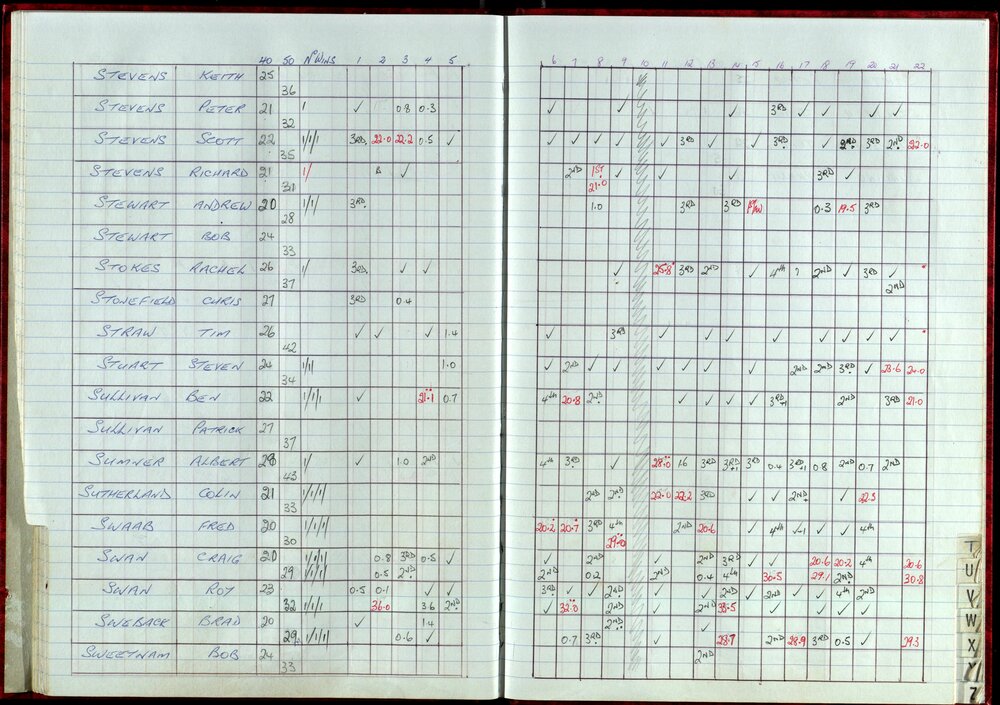 40 50 Nº WINS 1 2 3 4 5 6 7 8 9 10 11 12 13 14 15 16 17 18 19 20 21 22
STEVENS KEITH 25
36
STEVENS PETER 21 1 ✓ 0.8 0.3 ✓ ✓ ✓ 3RD ✓ ✓ ✓ ✓
32
STEVENS SCOTT 22 1/1/1 3RD. 22.0 22.2 0.5 ✓ ✓ ✓ ✓ ✓ ✓ 3RD ✓ ✓ ✓ 3RD ✓ 2ND 3RD 2ND 22.0
35
STEVENS RICHARD 21 1/ ✓ 2ND 1ST ✓ ✓ ✓ 3RD ✓
31 21.0
STEWART ANDREW 20 1/1/ 3RD. 1.0 3RD 3RD 0.3 19.5 3RD
28
STEWART BOB 24
33
STOKES RACHEL 26 1/ 3RD. ✓ ✓ ✓ 25.8 3RD 2ND ✓ 4th ? 2ND ✓ 3RD ✓
37 2ND
STONEFIELD CHRIS 27 3RD 0.4
STRAW TIM 26 ✓ ✓ ✓ 1.4 ✓ 3RD ✓ ✓ ✓ ✓ ✓ ✓ ✓ ✓ ✓
42
STUART STEVEN 24 1/1 1.0 ✓ 2ND ✓ ✓ ✓ ✓ ✓ ✓ 2ND 2ND 3RD ✓ 23.6
34
SULLIVAN BEN 22 1/1/1 ✓ 21.1 0.7 4th 20.8 2ND ✓ ✓ ✓ ✓ 3RD 2ND 3RD 21.0
SULLIVAN PATRICK 27
37
SUMNER ALBERT 28 1/ ✓ 1.0 2ND 4th 3RD ✓ 28.0 1.6 3RD 3RD+1 3RD 0.4 3RD+1 0.8 2ND 0.7 2ND
43
SUTHERLAND COLIN 21 1/1/1/ 2ND 2ND 22.0 22.2 3RD ✓ ✓ 2ND ✓ 22.3
33
SWAAB FRED 20 1/1/1/ 20.2 20.7 3RD 4th 2ND 20.6 ✓ 4th ✓ ✓ 4th
30 29.0
SWAN CRAIG 20 1/1/1/1 0.8 3RD 0.5 ✓ ✓ 2ND 2ND 3RD ✓ ✓ 20.6 20.2 4th 20.6
29 1/1/1/ 0.5 2ND 2ND 0.2 2ND 0.4 4th 30.5 29.1 2ND 30.8
SWAN ROY 23 0.5 0.1 ✓ ✓ 3RD ✓ ✓ 2ND ✓ ✓ 2ND ✓ 2ND ✓ ✓ 4th 2ND
32 1/1/1 36.0 3.6 2ND ✓ 32.0 2ND ✓ 2ND 33.5 ✓ ✓ ✓ ✓
SWEBACK BRAD 20 ✓ 1.4 2ND ✓
29 1/1/1 0.6 ✓ 0.7 3RD ✓ 28.7 2ND 28.9 3RD 0.5 ✓ 29.3
SWEETNAM BOB 24 2ND
33
T
U
V
W
X
Y
Z